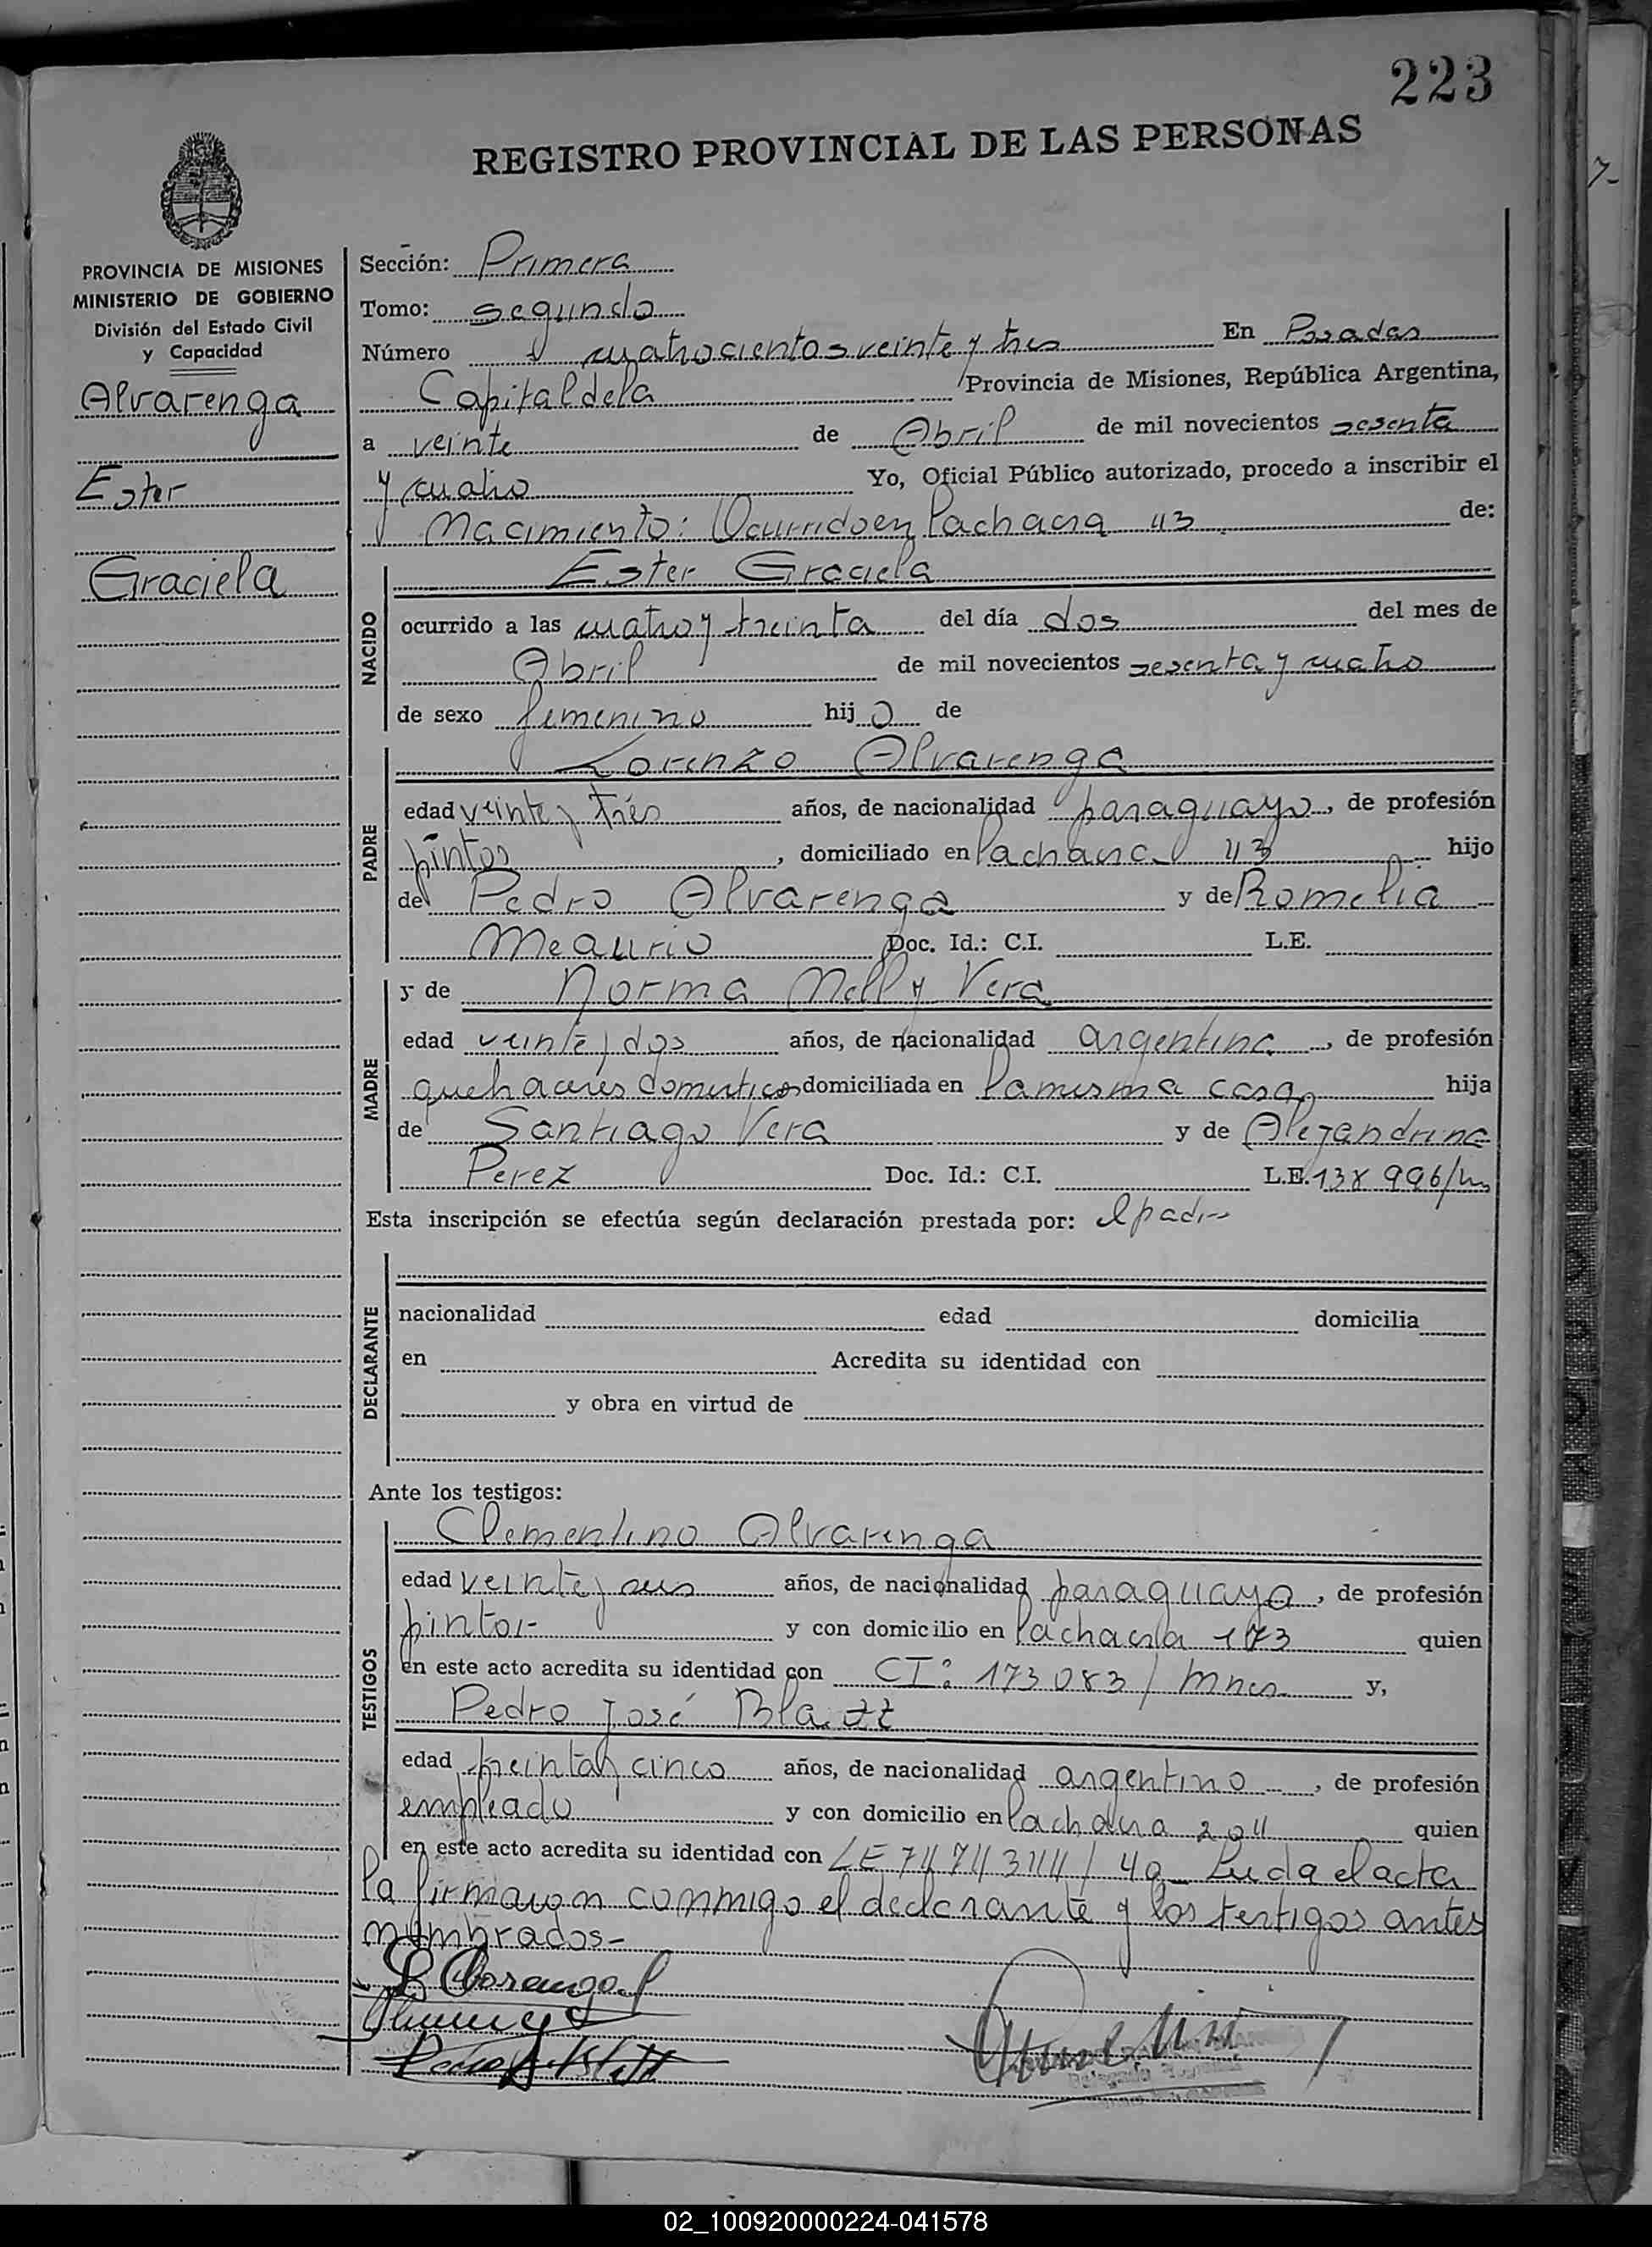 223
REGISTRO PROVINCIAL DE LAS PERSONAS
PROVINCIA DE MISIONES
MINISTERIO DE GOBIERNO
División del Estado Civil
y Capacidad
Alvarenga
Ester
Graciela
Sección: Primera
Tomo: segundo
Número cuatrocientos veinte y tres En Posadas
Capital de la Provincia de Misiones, República Argentina,
a veinte de Abril de mil novecientos sesenta
y cuatro Yo, Oficial Público autorizado, procedo a inscribir el
Nacimiento: Ocurrido en de:
NACIDO
Ester Graciela
ocurrido a las cuatro y treinta del día dos del mes de
Abril de mil novecientos sesenta y cuatro
de sexo femenino hij o de
PADRE
Lorenzo Alvarenga
edad veinte y tres años, de nacionalidad paraguayo, de profesión
pintor, domiciliado en hijo
de Pedro Alvarenga y de Romelia
Meaurio Doc. Id.: C.I. L.E.
MADRE
y de Norma Nelly Vera
edad veinte y dos años, de nacionalidad argentina, de profesión
quehaceres domesticos domiciliada en la misma casa hija
de Santiago Vera y de Alejandrina
Perez Doc. Id.: C.I. L.E. 138 996/
Esta inscripción se efectúa según declaración prestada por: el padre
DECLARANTE
nacionalidad edad domicilia
en Acredita su identidad con
y obra en virtud de
Ante los testigos:
TESTIGOS
Clementino Alvarenga
edad veinte y seis años, de nacionalidad paraguayo, de profesión
pintor y con domicilio en quien
en este acto acredita su identidad con CI: 173 083/Mnes y,
Pedro José
edad treinta y cinco años, de nacionalidad argentino, de profesión
empleado y con domicilio en quien
en este acto acredita su identidad con LE Leida el acta
la firmaron conmigo el declarante y los testigos antes
nombrados-
02_100920000224-041578